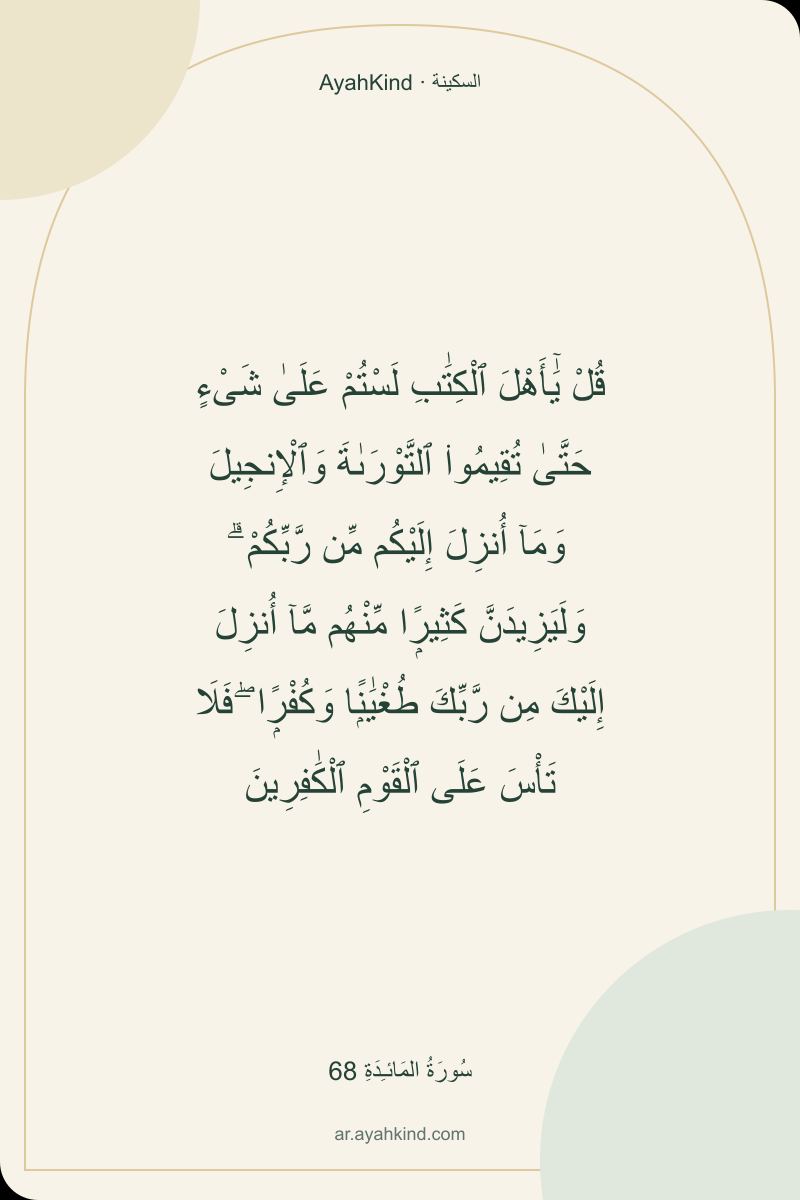 AyahKind · السكينة
قُلْ يَٰٓأَهْلَ ٱلْكِتَٰبِ لَسْتُمْ عَلَىٰ شَىْءٍ
حَتَّىٰ تُقِيمُوا۟ ٱلتَّوْرَىٰةَ وَٱلْإِنجِيلَ
وَمَآ أُنزِلَ إِلَيْكُم مِّن رَّبِّكُمْ ۗ
وَلَيَزِيدَنَّ كَثِيرًۭا مِّنْهُم مَّآ أُنزِلَ
إِلَيْكَ مِن رَّبِّكَ طُغْيَٰنًۭا وَكُفْرًۭا ۖ فَلَا
تَأْسَ عَلَى ٱلْقَوْمِ ٱلْكَٰفِرِينَ
سُورَةُ المَائـِدَةِ 68
ar.ayahkind.com